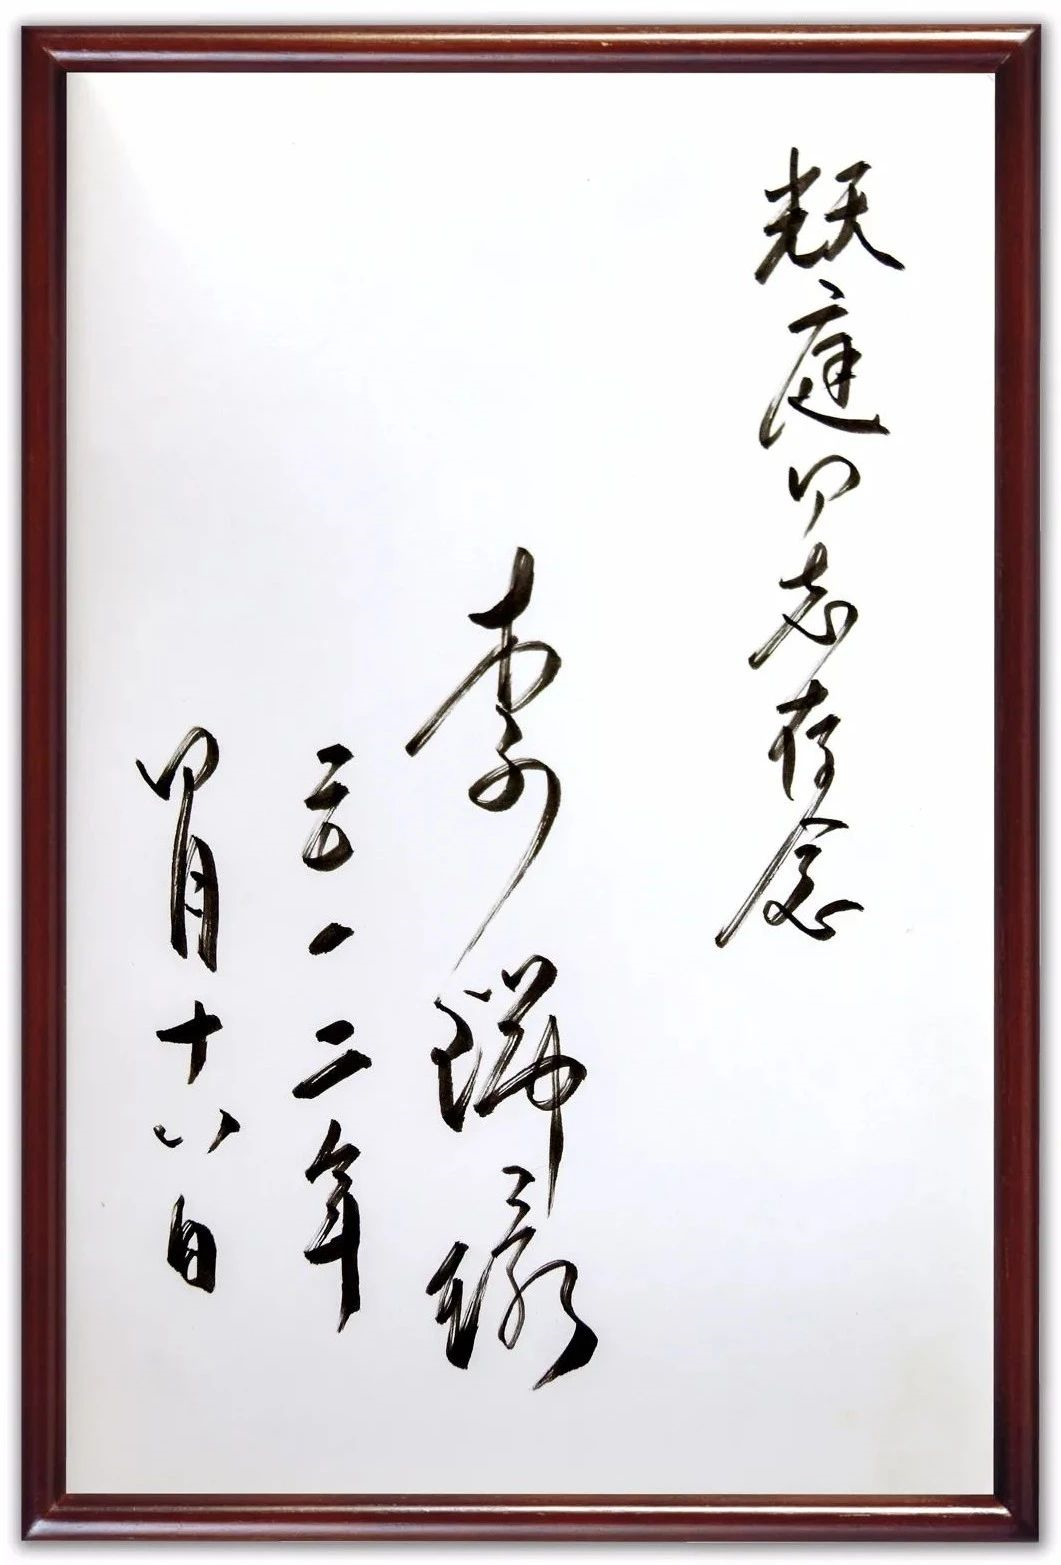 庭同志存念
李瑞环
二〇一二年
四月十八日